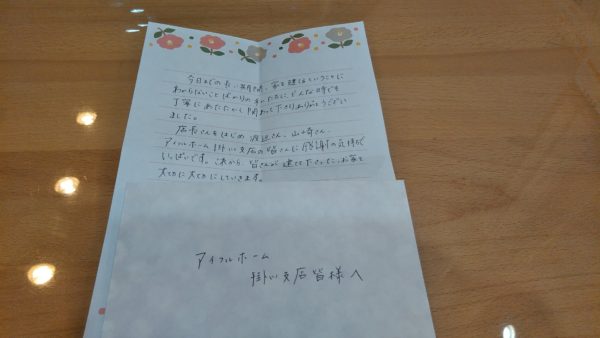 今日までの長い期間、家を建てるということに
わからないことばかりの私たちに、どんな時でも
丁寧にあたたかく関わって下さりありがとうござい
ました。
店長さんをはじめ 渡辺さん、山崎さん、
アイフルホーム掛川支店の皆さんに感謝の気持ちで
いっぱいです。これから、皆さんが建てて下さったお家を
大切に大切にしていきます。
アイフルホーム
掛川支店皆様へ